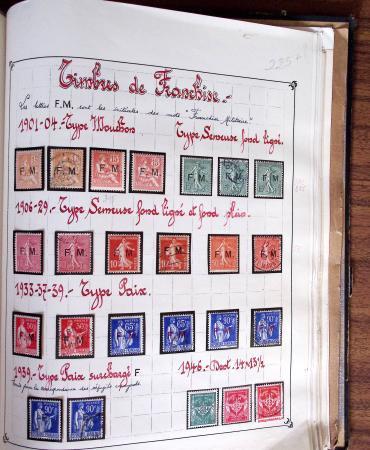 225
Timbres de Franchise.-
Les lettres F.M. sont les initiales des mots "Franchise Militaire"
1901-04.-Type Mouchon
Type Semeuse fond ligné.
F.M. F.M. F.M. F.M. F.M. F.M. F.M.
1906-29.-Type Semeuse fond ligné et fond plein.
F.M. F.M. F.M. F.M. F.M. F.M.
1933-37-39.-Type Paix.
1939.-Type Paix surchargé F
1946.-Dent. 14x13½